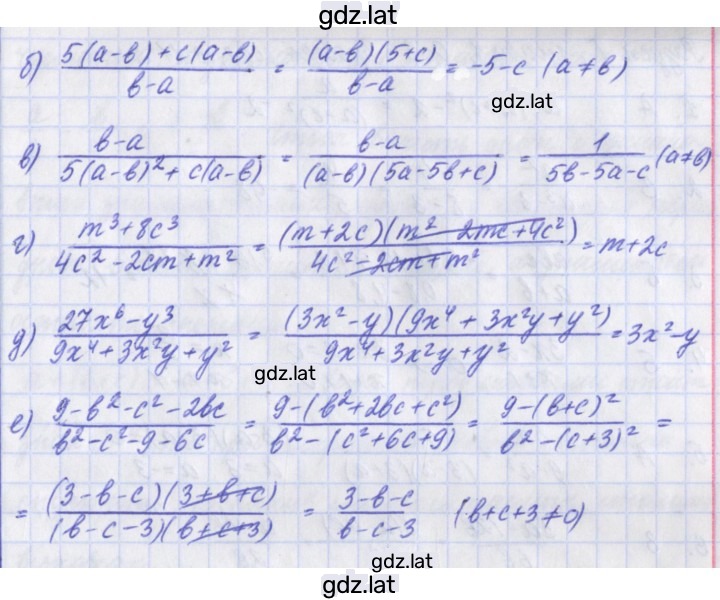 gdz.lat
б) (5(a-b)+c(a-b))/(b-a) = ((a-b)(5+c))/(b-a) = -5-c (a≠b)
gdz.lat
в) (b-a)/(5(a-b)²+c(a-b)) = (b-a)/((a-b)(5a-5b+c)) = 1/(5b-5a-c) (a≠b)
г) (m³+8c³)/(4c²-2cm+m²) = ((m+2c)(m²-2mc+4c²))/(4c²-2cm+m²) = m+2c
д) (27x⁶-y³)/(9x⁴+3x²y+y²) = ((3x²-y)(9x⁴+3x²y+y²))/(9x⁴+3x²y+y²) = 3x²-y
gdz.lat
е) (9-b²-c²-2bc)/(b²-c²-9-6c) = (9-(b²+2bc+c²))/(b²-(c²+6c+9)) = (9-(b+c)²)/(b²-(c+3)²) =
= ((3-b-c)(3+b+c))/((b-c-3)(b+c+3)) = (3-b-c)/(b-c-3) (b+c+3≠0)
gdz.lat
gdz.lat